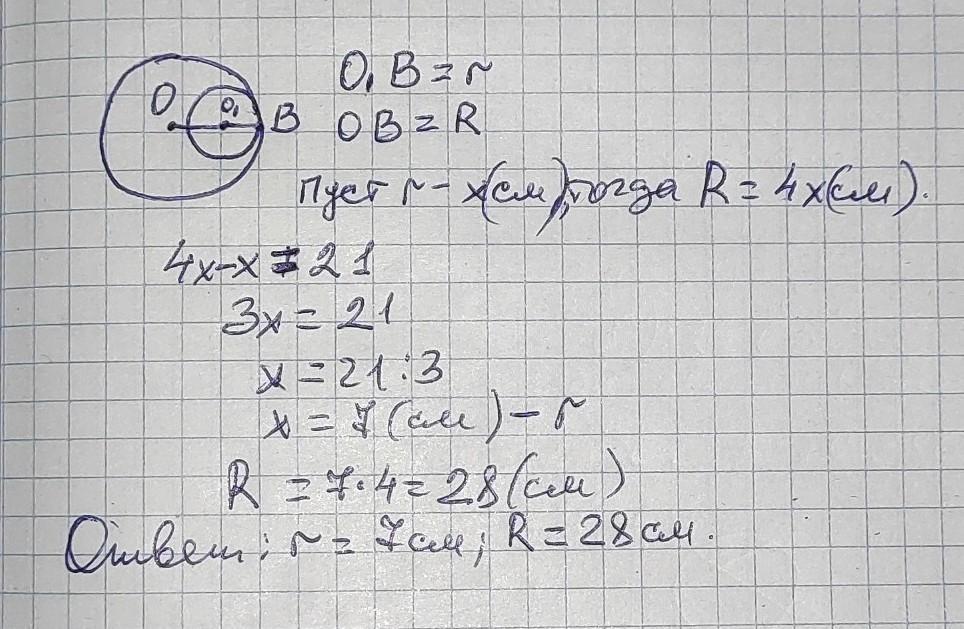 O O₁ B
O₁B = r
OB = R
Пуст r - x(см), тогда R = 4x(см).
4x-x = 21
3x = 21
x = 21:3
x = 7 (см) - r
R = 7·4 = 28 (см)
Ответ: r = 7см; R = 28 см.